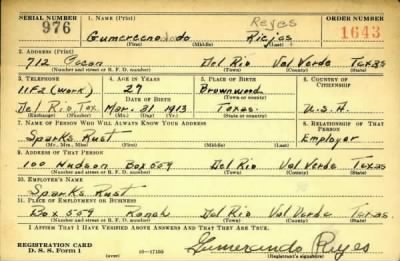 SERIAL NUMBER 1. NAME (Print) Reyes ORDER NUMBER
976 Riejas 1643
(First) (Middle) (Last)
2. ADDRESS (Print)
712 Pecan Del Rio Val Verde Texas
(Number and street or R. F. D. number) (Town) (County) (State)
3. TELEPHONE 4. AGE IN YEARS 5. PLACE OF BIRTH 6. COUNTRY OF CITIZENSHIP
11F2 (work) 27 Brownwood
DATE OF BIRTH (Town or county)
Del Rio Tex. Mar. 31 1913 Texas. U.S.A.
(Exchange) (Number) (Mo.) (Day) (Yr.) (State or country)
7. NAME OF PERSON WHO WILL ALWAYS KNOW YOUR ADDRESS 8. RELATIONSHIP OF THAT PERSON
Sparks Rust Employer
(Mr., Mrs., Miss) (First) (Middle) (Last)
9. ADDRESS OF THAT PERSON
100 Hudson Box 559 Del Rio Val Verde Texas
(Number and street or R. F. D. number) (Town) (County) (State)
10. EMPLOYER'S NAME
Sparks Rust
11. PLACE OF EMPLOYMENT OR BUSINESS
Box 559 Ranch Del Rio Val Verde Texas.
(Number and street or R. F. D. number) (Town) (County) (State)
I AFFIRM THAT I HAVE VERIFIED ABOVE ANSWERS AND THAT THEY ARE TRUE.
REGISTRATION CARD
D. S. S. Form 1 (over) 16—17105 Gumercindo Reyes
(Registrant's signature)